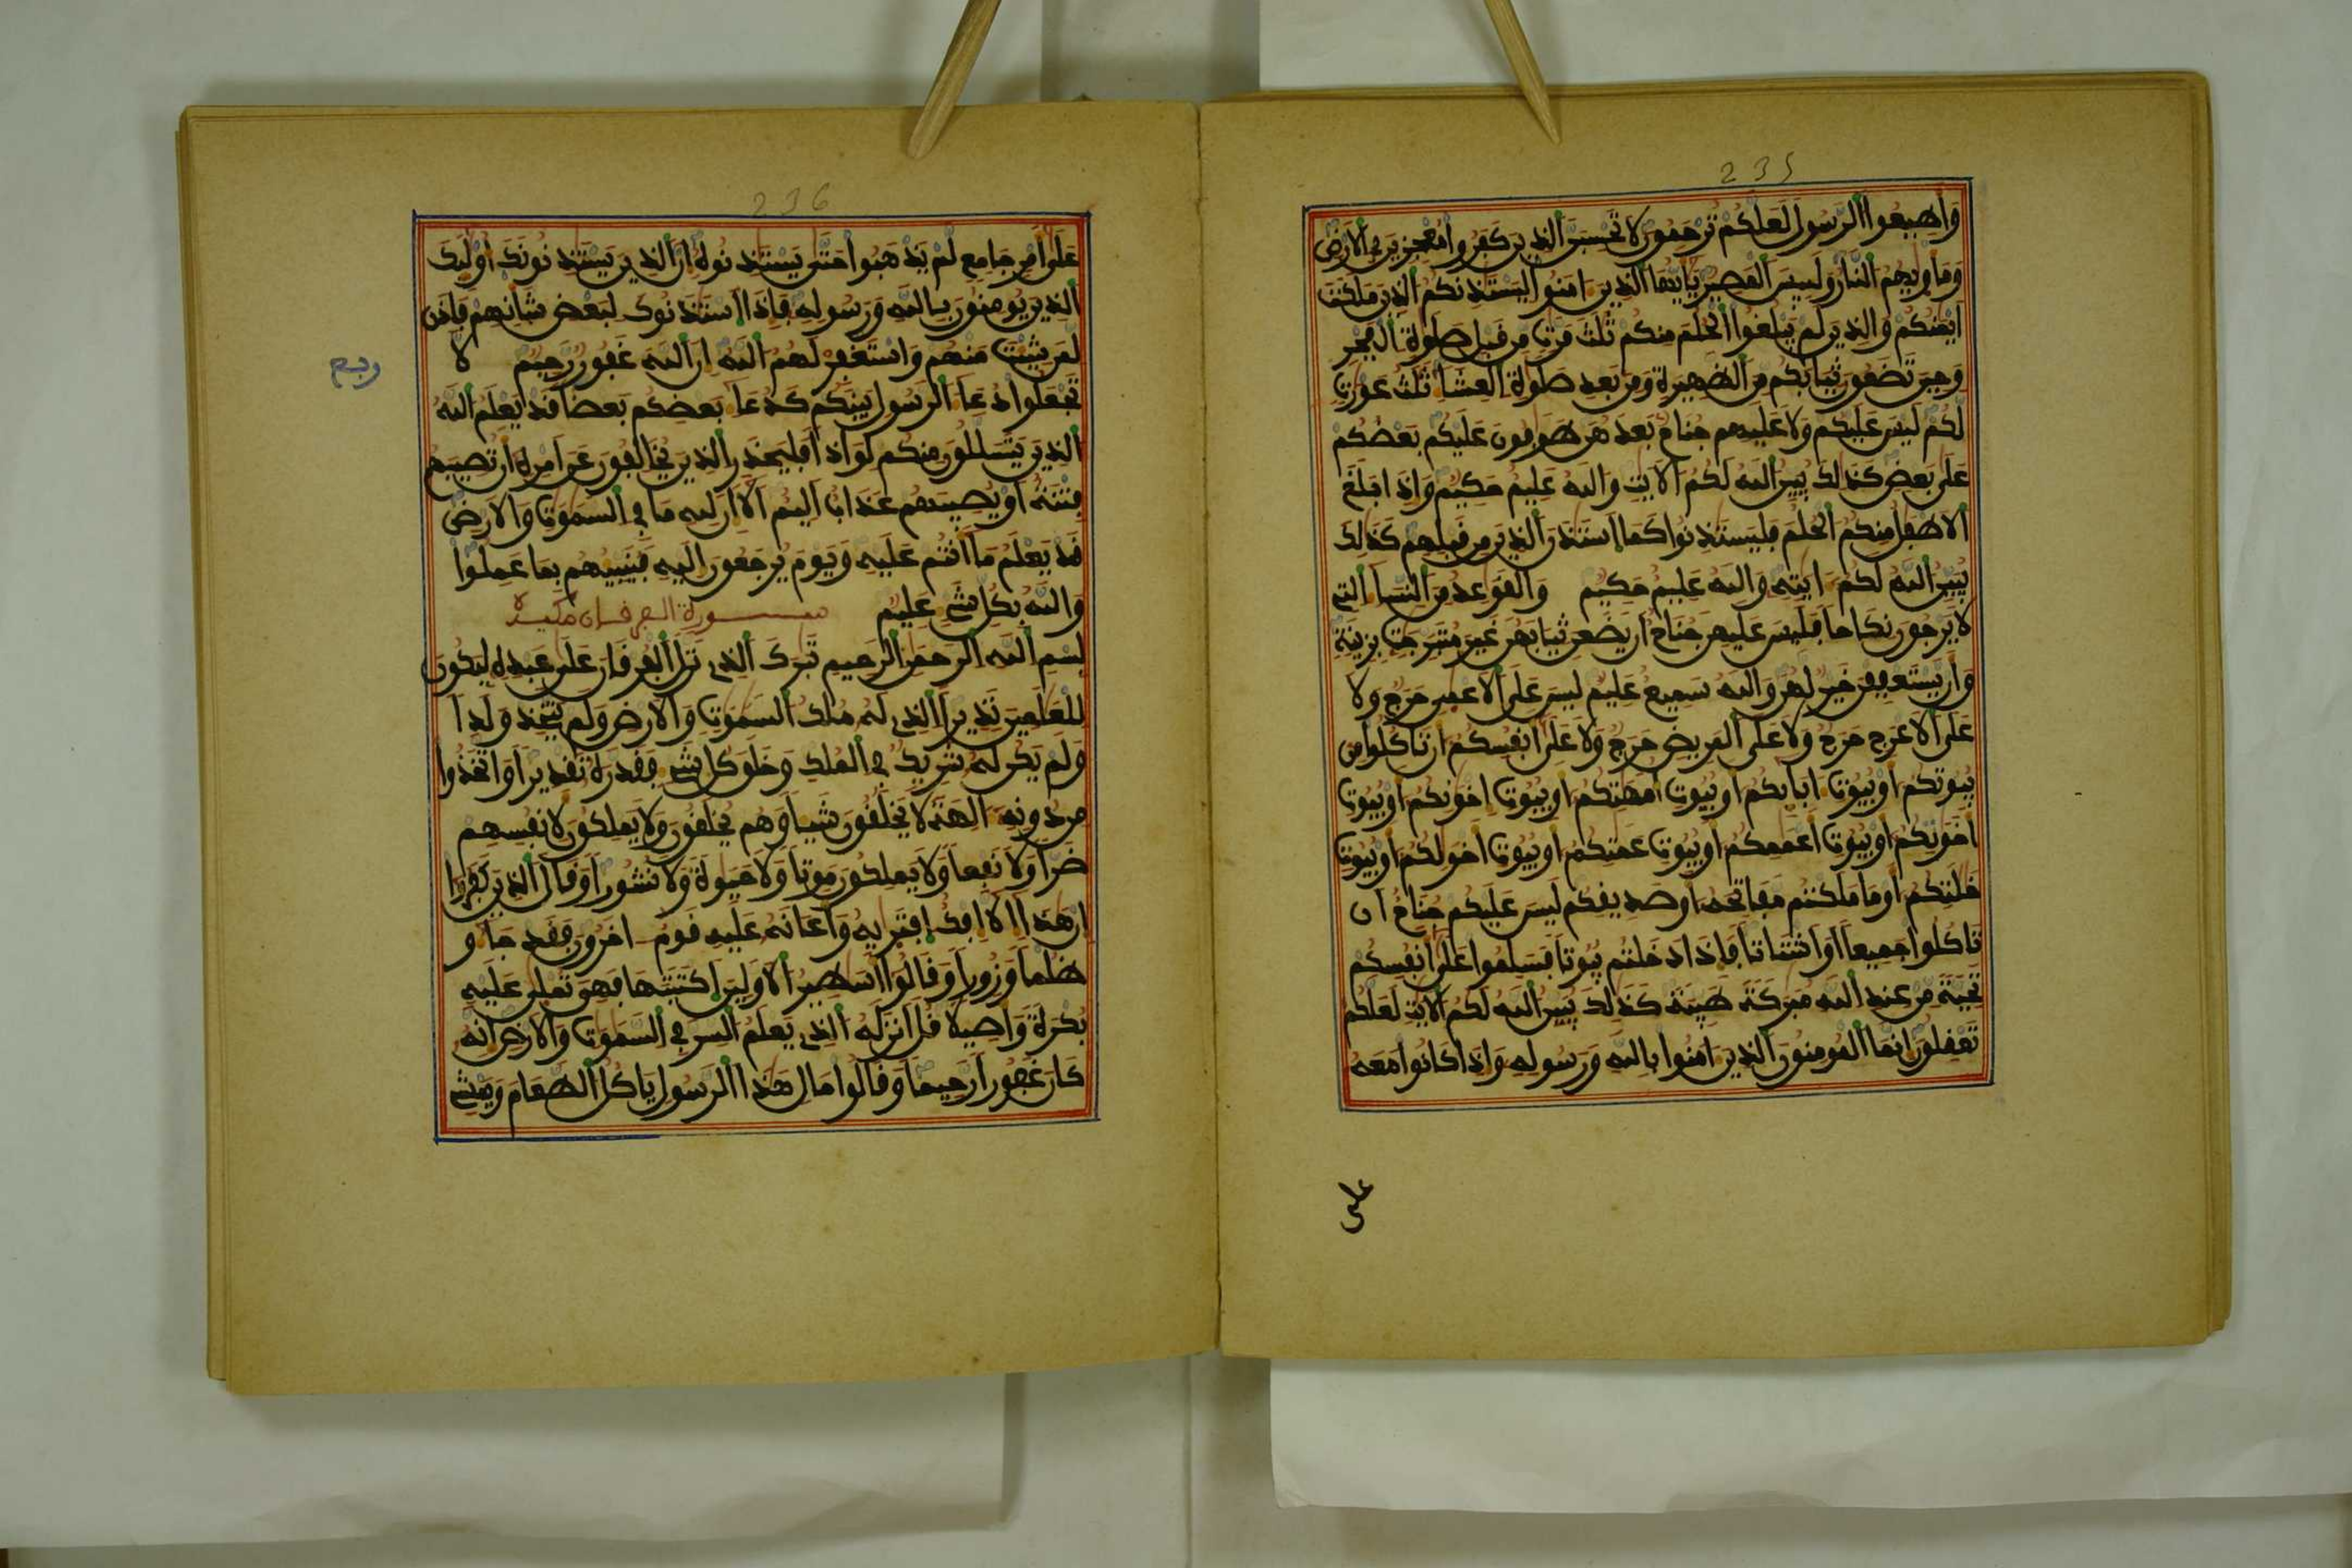 235
وَأَطِيعُوا الرَّسُولَ لَعَلَّكُمْ تُرْحَمُونَ لَا تَحْسِبَنَّ الَّذِينَ كَفَرُوا مُعْجِزِينَ فِي الْأَرْضِ
وَمَأْوِيهُمُ النَّارُ وَلَبِيسَ الْمَصِيرُ يَأَيُّهَا الَّذِينَ ءَامَنُوا لِيَسْتَـْٔذِنكُمُ الَّذِينَ مَلَكَتَ
اَيْمَنُكُمْ وَالَّذِينَ لَمْ يَبْلُغُوا الْحُلُمَ مِنكُمْ ثَلَثَ مَرَّتٍ مِّن قَبْلِ صَلَوةِ الْفَجْرِ
وَحِينَ تَضَعُونَ ثِيَابَكُم مِّنَ الظَّهِيرَةِ وَمِن بَعْدِ صَلَوةِ الْعِشَاءِ ثَلَثُ عَوْرَتٍ
لَّكُمْ لَيْسَ عَلَيْكُمْ وَلَا عَلَيْهِمْ جُنَاحٌ بَعْدَهُنَّ طَوَّفُونَ عَلَيْكُم بَعْضُكُمْ
عَلَى بَعْضٍ كَذَلِكَ يُبَيِّنُ اللَّهُ لَكُمُ الْأَيَتِ وَاللَّهُ عَلِيمٌ حَكِيمٌ وَإِذَا بَلَغَ
الْأَطْفَلُ مِنكُمُ الْحُلُمَ فَلْيَسْتَـْٔذِنُوا كَمَا اسْتَـْٔذَنَ الَّذِينَ مِن قَبْلِهِمْ كَذَلِكَ
يُبَيِّنُ اللَّهُ لَكُمْ ءَايَتِهِ وَاللَّهُ عَلِيمٌ حَكِيمٌ وَالْقَوَعِدُ مِنَ النِّسَاءِ الَّتِي
لَا يَرْجُونَ نِكَاحًا فَلَيْسَ عَلَيْهِنَّ جُنَاحٌ اَنْ يَّضَعْنَ ثِيَابَهُنَّ غَيْرَ مُتَبَرِّجَتٍ بِزِينَةٍ
وَأَنْ يَّسْتَعْفِفْنَ خَيْرٌ لَّهُنَّ وَاللَّهُ سَمِيعٌ عَلِيمٌ لَيْسَ عَلَى الْأَعْمَى حَرَجٌ وَلَا
عَلَى الْأَعْرَجِ حَرَجٌ وَلَا عَلَى الْمَرِيضِ حَرَجٌ وَلَا عَلَى أَنفُسِكُمْ أَن تَاكُلُوا مِن
بُيُوتِكُمْ أَوْ بُيُوتِ ءَابَائِكُمْ أَوْ بُيُوتِ أُمَّهَتِكُمْ أَوْ بُيُوتِ إِخْوَنِكُمْ أَوْ بُيُوتِ
أَخَوَتِكُمْ أَوْ بُيُوتِ أَعْمَمِكُمْ أَوْ بُيُوتِ عَمَّتِكُمْ أَوْ بُيُوتِ أَخْوَلِكُمْ أَوْ بُيُوتِ
خَلَتِكُمْ أَوْ مَا مَلَكْتُم مَّفَاتِحَهُ أَوْ صَدِيقِكُمْ لَيْسَ عَلَيْكُمْ جُنَاحٌ أَن
تَاكُلُوا جَمِيعًا أَوْ أَشْتَاتًا فَإِذَا دَخَلْتُم بُيُوتًا فَسَلِّمُوا عَلَى أَنفُسِكُمْ
تَحِيَّةً مِّنْ عِندِ اللَّهِ مُبَرَكَةً طَيِّبَةً كَذَلِكَ يُبَيِّنُ اللَّهُ لَكُمُ الْأَيَتِ لَعَلَّكُمْ
تَعْقِلُونَ إِنَّمَا الْمُومِنُونَ الَّذِينَ ءَامَنُوا بِاللَّهِ وَرَسُولِهِ وَإِذَا كَانُوا مَعَهُ
على
236
عَلَى أَمْرٍ جَامِعٍ لَّمْ يَذْهَبُوا حَتَّى يَسْتَـْٔذِنُوهُ إِنَّ الَّذِينَ يَسْتَـْٔذِنُونَكَ أُوْلَئِكَ
الَّذِينَ يُومِنُونَ بِاللَّهِ وَرَسُولِهِ فَإِذَا اسْتَـْٔذَنُوكَ لِبَعْضِ شَأْنِهِمْ فَاذَن
لِّمَن شِئْتَ مِنْهُمْ وَاسْتَغْفِرْ لَهُمُ اللَّهَ إِنَّ اللَّهَ غَفُورٌ رَّحِيمٌ لَا
ربع
تَجْعَلُوا دُعَاءَ الرَّسُولِ بَيْنَكُمْ كَدُعَاءِ بَعْضِكُم بَعْضًا قَدْ يَعْلَمُ اللَّهُ
الَّذِينَ يَتَسَلَّلُونَ مِنكُمْ لِوَاذًا فَلْيَحْذَرِ الَّذِينَ يُخَالِفُونَ عَنْ أَمْرِهِ أَن تُصِيبَهُمْ
فِتْنَةٌ أَوْ يُصِيبَهُمْ عَذَابٌ أَلِيمٌ أَلَا إِنَّ لِلَّهِ مَا فِي السَّمَوَتِ وَالْأَرْضِ
قَدْ يَعْلَمُ مَا أَنتُمْ عَلَيْهِ وَيَوْمَ يُرْجَعُونَ إِلَيْهِ فَيُنَبِّئُهُم بِمَا عَمِلُوا
وَاللَّهُ بِكُلِّ شَيْءٍ عَلِيمٌ سورة الفرقان مكية
بِسْمِ اللَّهِ الرَّحْمَنِ الرَّحِيمِ تَبَرَكَ الَّذِي نَزَّلَ الْفُرْقَانَ عَلَى عَبْدِهِ لِيَكُونَ
لِلْعَلَمِينَ نَذِيرًا الَّذِي لَهُ مُلْكُ السَّمَوَتِ وَالْأَرْضِ وَلَمْ يَتَّخِذْ وَلَدًا
وَلَمْ يَكُن لَّهُ شَرِيكٌ فِي الْمُلْكِ وَخَلَقَ كُلَّ شَيْءٍ فَقَدَّرَهُ تَقْدِيرًا وَاتَّخَذُوا
مِن دُونِهِ ءَالِهَةً لَّا يَخْلُقُونَ شَيْئًا وَهُمْ يُخْلَقُونَ وَلَا يَمْلِكُونَ لِأَنفُسِهِمْ
ضَرًّا وَلَا نَفْعًا وَلَا يَمْلِكُونَ مَوْتًا وَلَا حَيَوةً وَلَا نُشُورًا وَقَالَ الَّذِينَ كَفَرُوا
إِنْ هَذَا إِلَّا إِفْكٌ افْتَرَيهُ وَأَعَانَهُ عَلَيْهِ قَوْمٌ ءَاخَرُونَ فَقَدْ جَاءُو
ظُلْمًا وَزُورًا وَقَالُوا أَسَطِيرُ الْأَوَّلِينَ اكْتَتَبَهَا فَهِيَ تُمْلَى عَلَيْهِ
بُكْرَةً وَأَصِيلًا قُلْ أَنزَلَهُ الَّذِي يَعْلَمُ السِّرَّ فِي السَّمَوَتِ وَالْأَرْضِ إِنَّهُ
كَانَ غَفُورًا رَّحِيمًا وَقَالُوا مَالِ هَذَا الرَّسُولِ يَاكُلُ الطَّعَامَ وَيَمْشِي